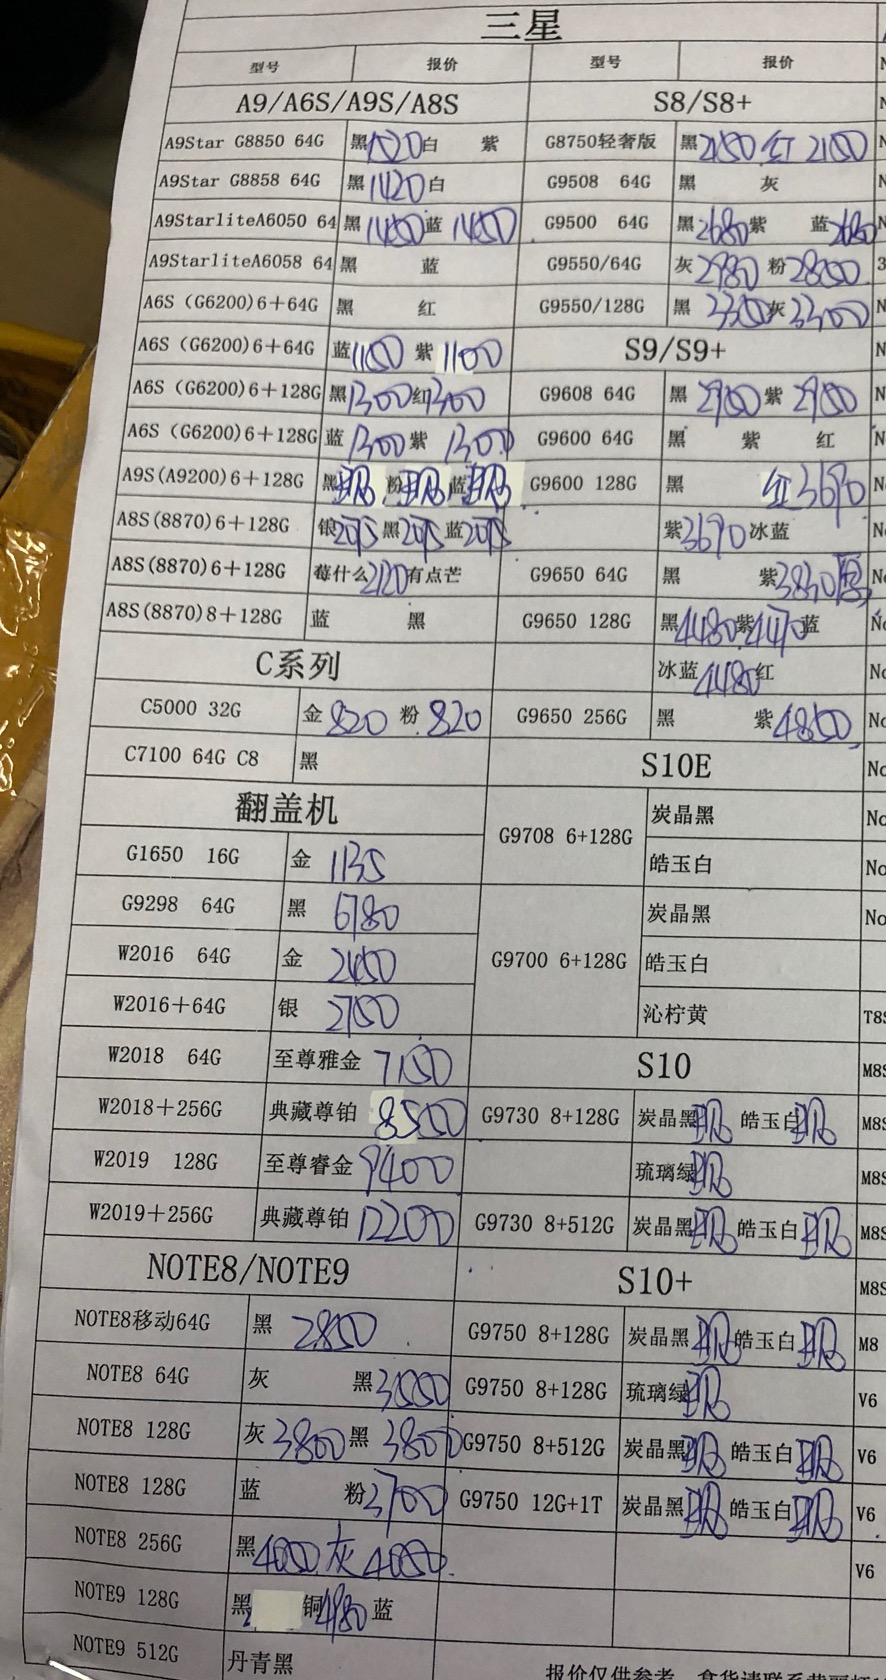 三星
型号 报价 型号 报价
A9/A6S/A9S/A8S S8/S8+
A9Star G8850 64G 黑1520白 紫 G8750轻奢版 黑2150 红 2150
A9Star G8858 64G 黑1420白 G9508 64G 黑 灰
A9StarliteA6050 64 黑1450蓝 1450 G9500 64G 黑2680紫 蓝2680
A9StarliteA6058 64 黑 蓝 G9550/64G 灰2980 粉2800
A6S (G6200)6+64G 黑 红 G9550/128G 黑 3300灰3300
A6S (G6200)6+64G 蓝1100 紫 1100 S9/S9+
A6S (G6200)6+128G 黑1300红1300 G9608 64G 黑 2950紫 2950
A6S (G6200)6+128G 蓝 1300紫 1300 G9600 64G 黑 紫 红
A9S(A9200)6+128G 黑现 粉现 蓝现 G9600 128G 黑 红3690
A8S(8870)6+128G 银2075 黑2075 蓝2075 紫3690冰蓝
A8S(8870)6+128G 莓什么2120有点芒 G9650 64G 黑 紫3830
A8S(8870)8+128G 蓝 黑 G9650 128G 黑4480紫4470蓝
C系列 冰蓝4480红
C5000 32G 金 820 粉 820 G9650 256G 黑 紫4850
C7100 64G C8 黑 S10E
翻盖机 G9708 6+128G 炭晶黑
G1650 16G 金 1135 皓玉白
G9298 64G 黑 6780 炭晶黑
W2016 64G 金 2450 G9700 6+128G 皓玉白
W2016+64G 银 2750 沁柠黄
W2018 64G 至尊雅金 7150 S10
W2018+256G 典藏尊铂 8500 G9730 8+128G 炭晶黑现 皓玉白现
W2019 128G 至尊睿金 9400 琉璃绿现
W2019+256G 典藏尊铂 12200 G9730 8+512G 炭晶黑现 皓玉白现
NOTE8/NOTE9 S10+
NOTE8移动64G 黑 2850 G9750 8+128G 炭晶黑现皓玉白现
NOTE8 64G 灰 黑 G9750 8+128G 琉璃绿现
NOTE8 128G 灰3800黑 3800 G9750 8+512G 炭晶黑现 皓玉白现
NOTE8 128G 蓝 粉3700 G9750 12G+1T 炭晶黑现 皓玉白现
NOTE8 256G 黑4050 灰 4050
NOTE9 128G 黑 铜4980 蓝
NOTE9 512G 丹青黑
报价仅供参考